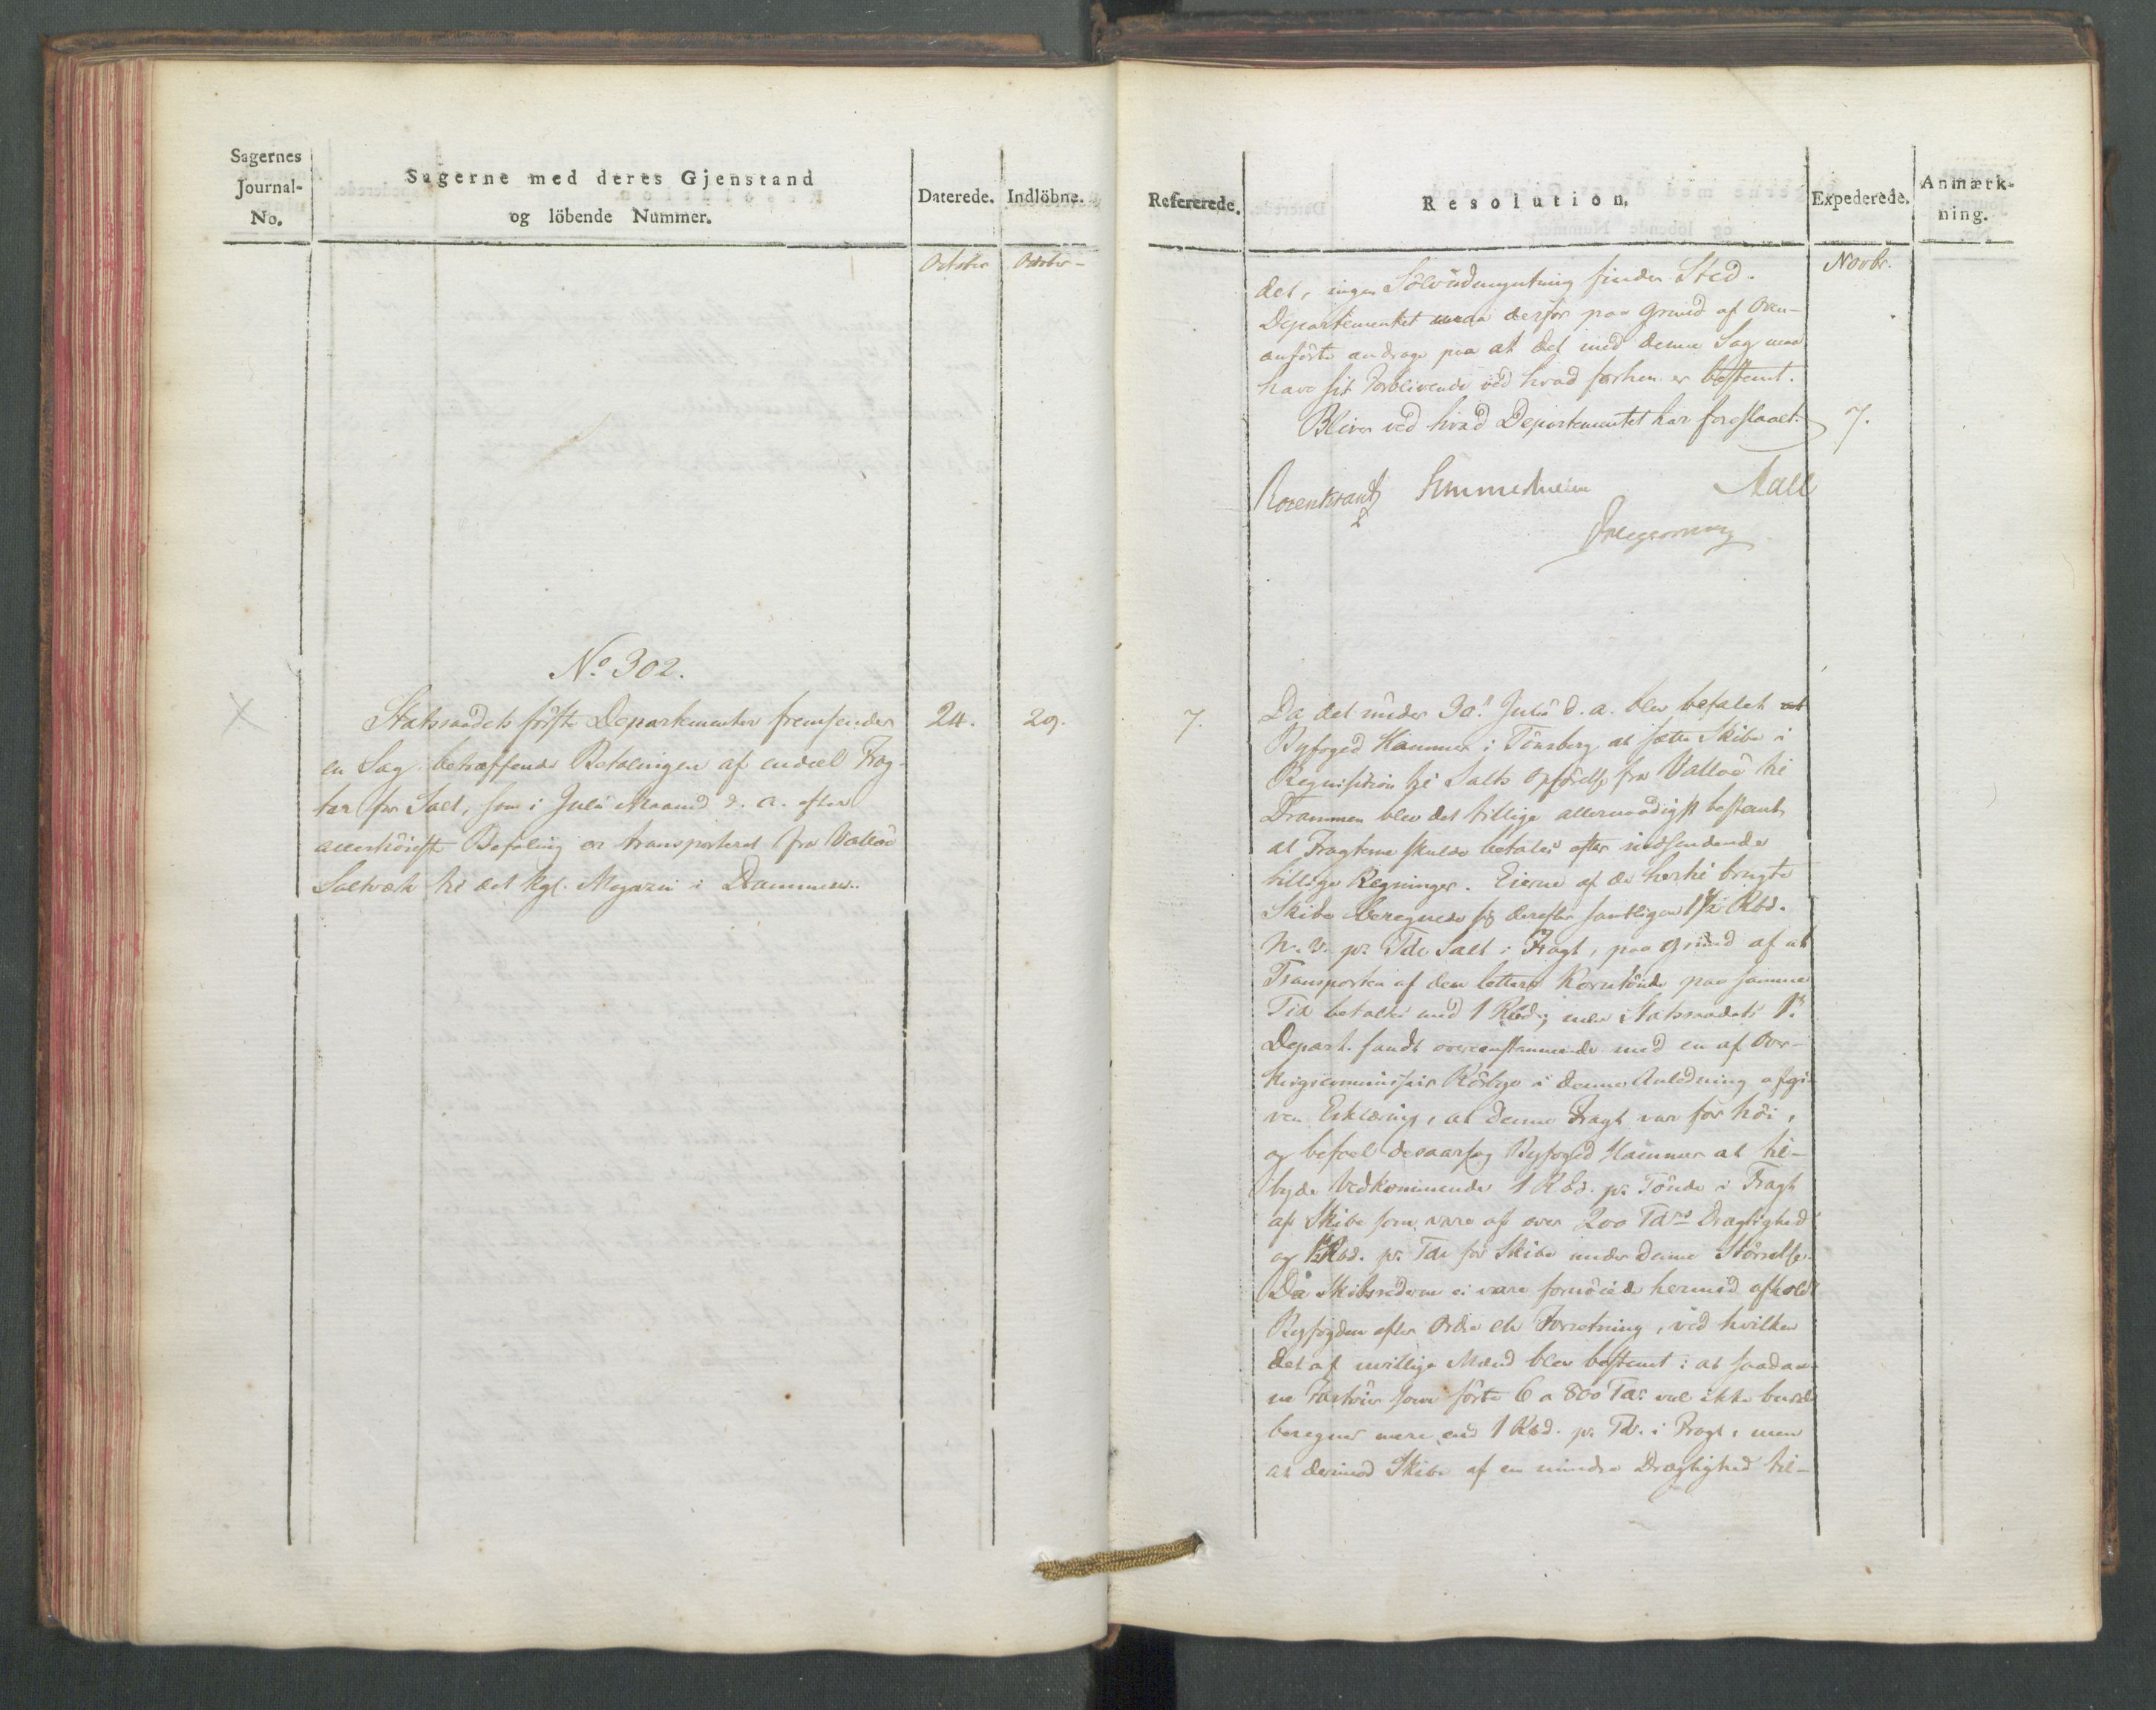 Sagernes
Journal-
No.
Sagerne med deres Gjenstand
og löbende Nummer.
Daterede.
Indlöbne.
October
October
No. 302.
Statsraadets förste Departementer fremsender
en Sag betræffende Betalingen af endeel Frag-
ter for Salt, som i Juli Maaned d. a. efter
allerhöieste Befaling er transporteret fra Valløe
Saltværk til det kgl. Magazin i Drammen.
24.
29.
Refererede.
Resolution.
Expederede.
Anmærk-
ning.
Novbr.
det, ingen Sølvudmyntning finder Sted.
Departementet maa derfor paa Grund af Oven-
anförte andrage paa at det med denne Sag maa
have sit Forblivende ved hvad forhen er bestemt.
Bliver ved hvad Departementet har foreslaaet.
7.
Rosenkrantz Sommerhielm Aall
7.
Da det under 30. Juli d. a. blev befalet at
Byfoged Hammer i Tönsberg at sætte Skibe i
Requisition til Salts Opförelse fra Valloe til
Drammen blev det tillige allernaadigst bestemt
at Fragterne skulde betales efter indsendende
billige Regninger. Eierne af de hertil brugte
Skibe beregnede sig derefter samtligen 1½ Rbd.
N. V. pr. Tde Salt i Fragt, paa Grund af at
Transporten af den lettere Korntönde paa samme
Tid betales med 1 Rbd; men Statsraadets 1.
Depart. fandt overeenstemmende med en af Over-
krigscommissair Körbye i denne Anledning afgi-
ven Erklæring, at denne Fragt var for höi,
og befoel desaarsag Byfoged Hammer at til-
byde Vedkommende 1 Rbd. pr. Tönde i Fragt
af Skibe som vare af over 200 Tdrs Drægtighed
og Rbd. pr. Tde for Skibe under denne Störrelse.
Da Skibsrederne ei vare fornöiede hermed afholdt
Byfogden efter Ordre en Forretning, ved hvilken
det af uvillige Mænd blev bestemt: at saadan-
ne Fartöier som förte 6 a 800 Tdr vel ikke burde
beregnes mere end 1 Rbd. pr. Td. i Fragt, men
at derimod Skibe af en mindre Drægtighed til-